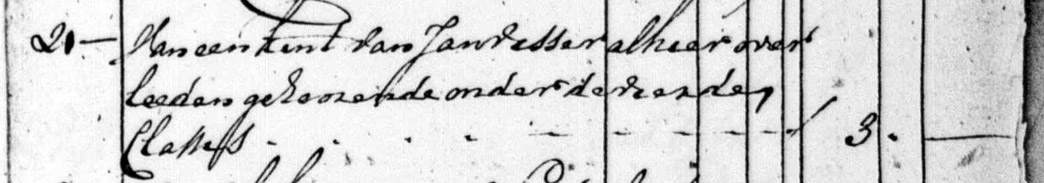 21 — Van een kint van Jan Visser alhier over
leeden gehoorende onder de vierde
Classis . . . . — — — — / 3 . —